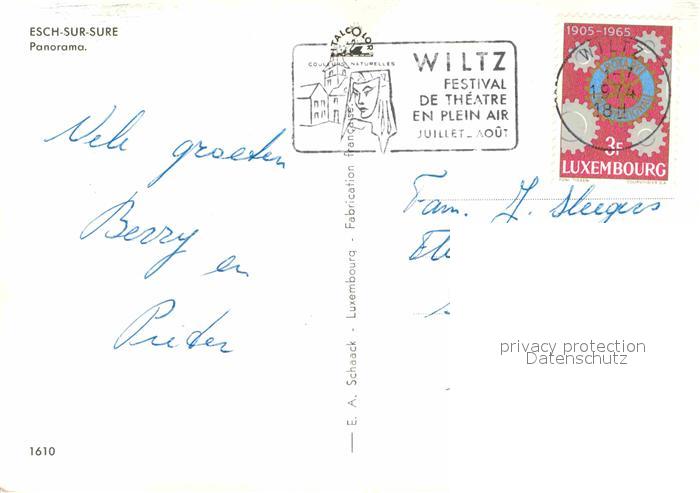 ESCH-SUR-SURE
Panorama.
ITALCOLOR
COULEURS NATURELLES
WILTZ
FESTIVAL
DE THÉATRE
EN PLEIN AIR
JUILLET_AOÛT
1905-1965
WILTZ
1974
18
3F
LUXEMBOURG
Vele groeten
Berry
en
Pieter
E. A. Schaack - Luxembourg - Fabrication française
Fam. J. Sleegers
privacy protection
Datenschutz
1610